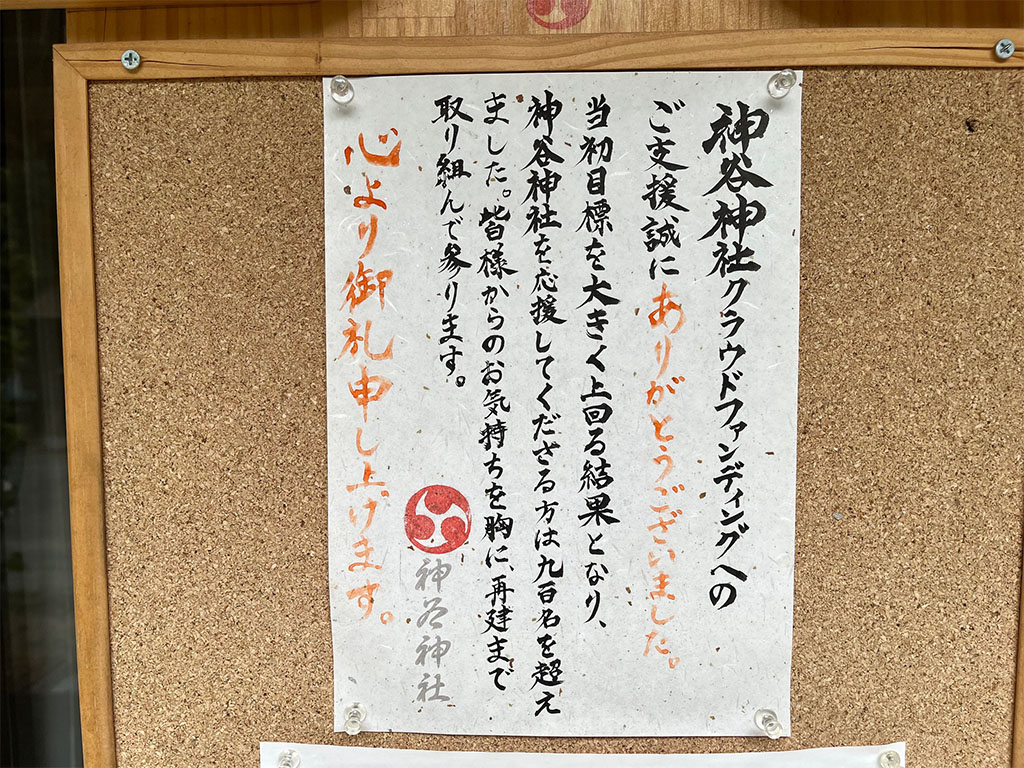 神谷神社クラウドファンディングへの
ご支援誠にありがとうございました。
当初目標を大きく上回る結果となり、
神谷神社を応援してくださる方は九百名を超え
ました。皆様からのお気持ちを胸に、再建まで
取り組んで参ります。
神谷神社
心より御礼申し上げます。